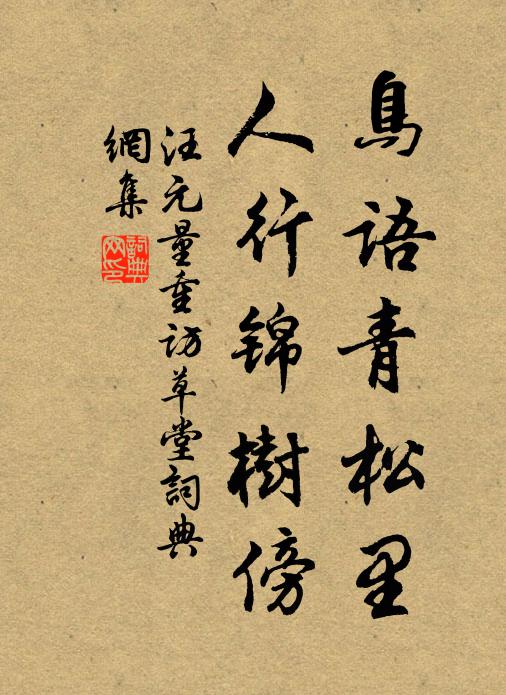 鳥語青松里
人行錦樹傍
汪元量重访草堂詞典
網集
詞典网印